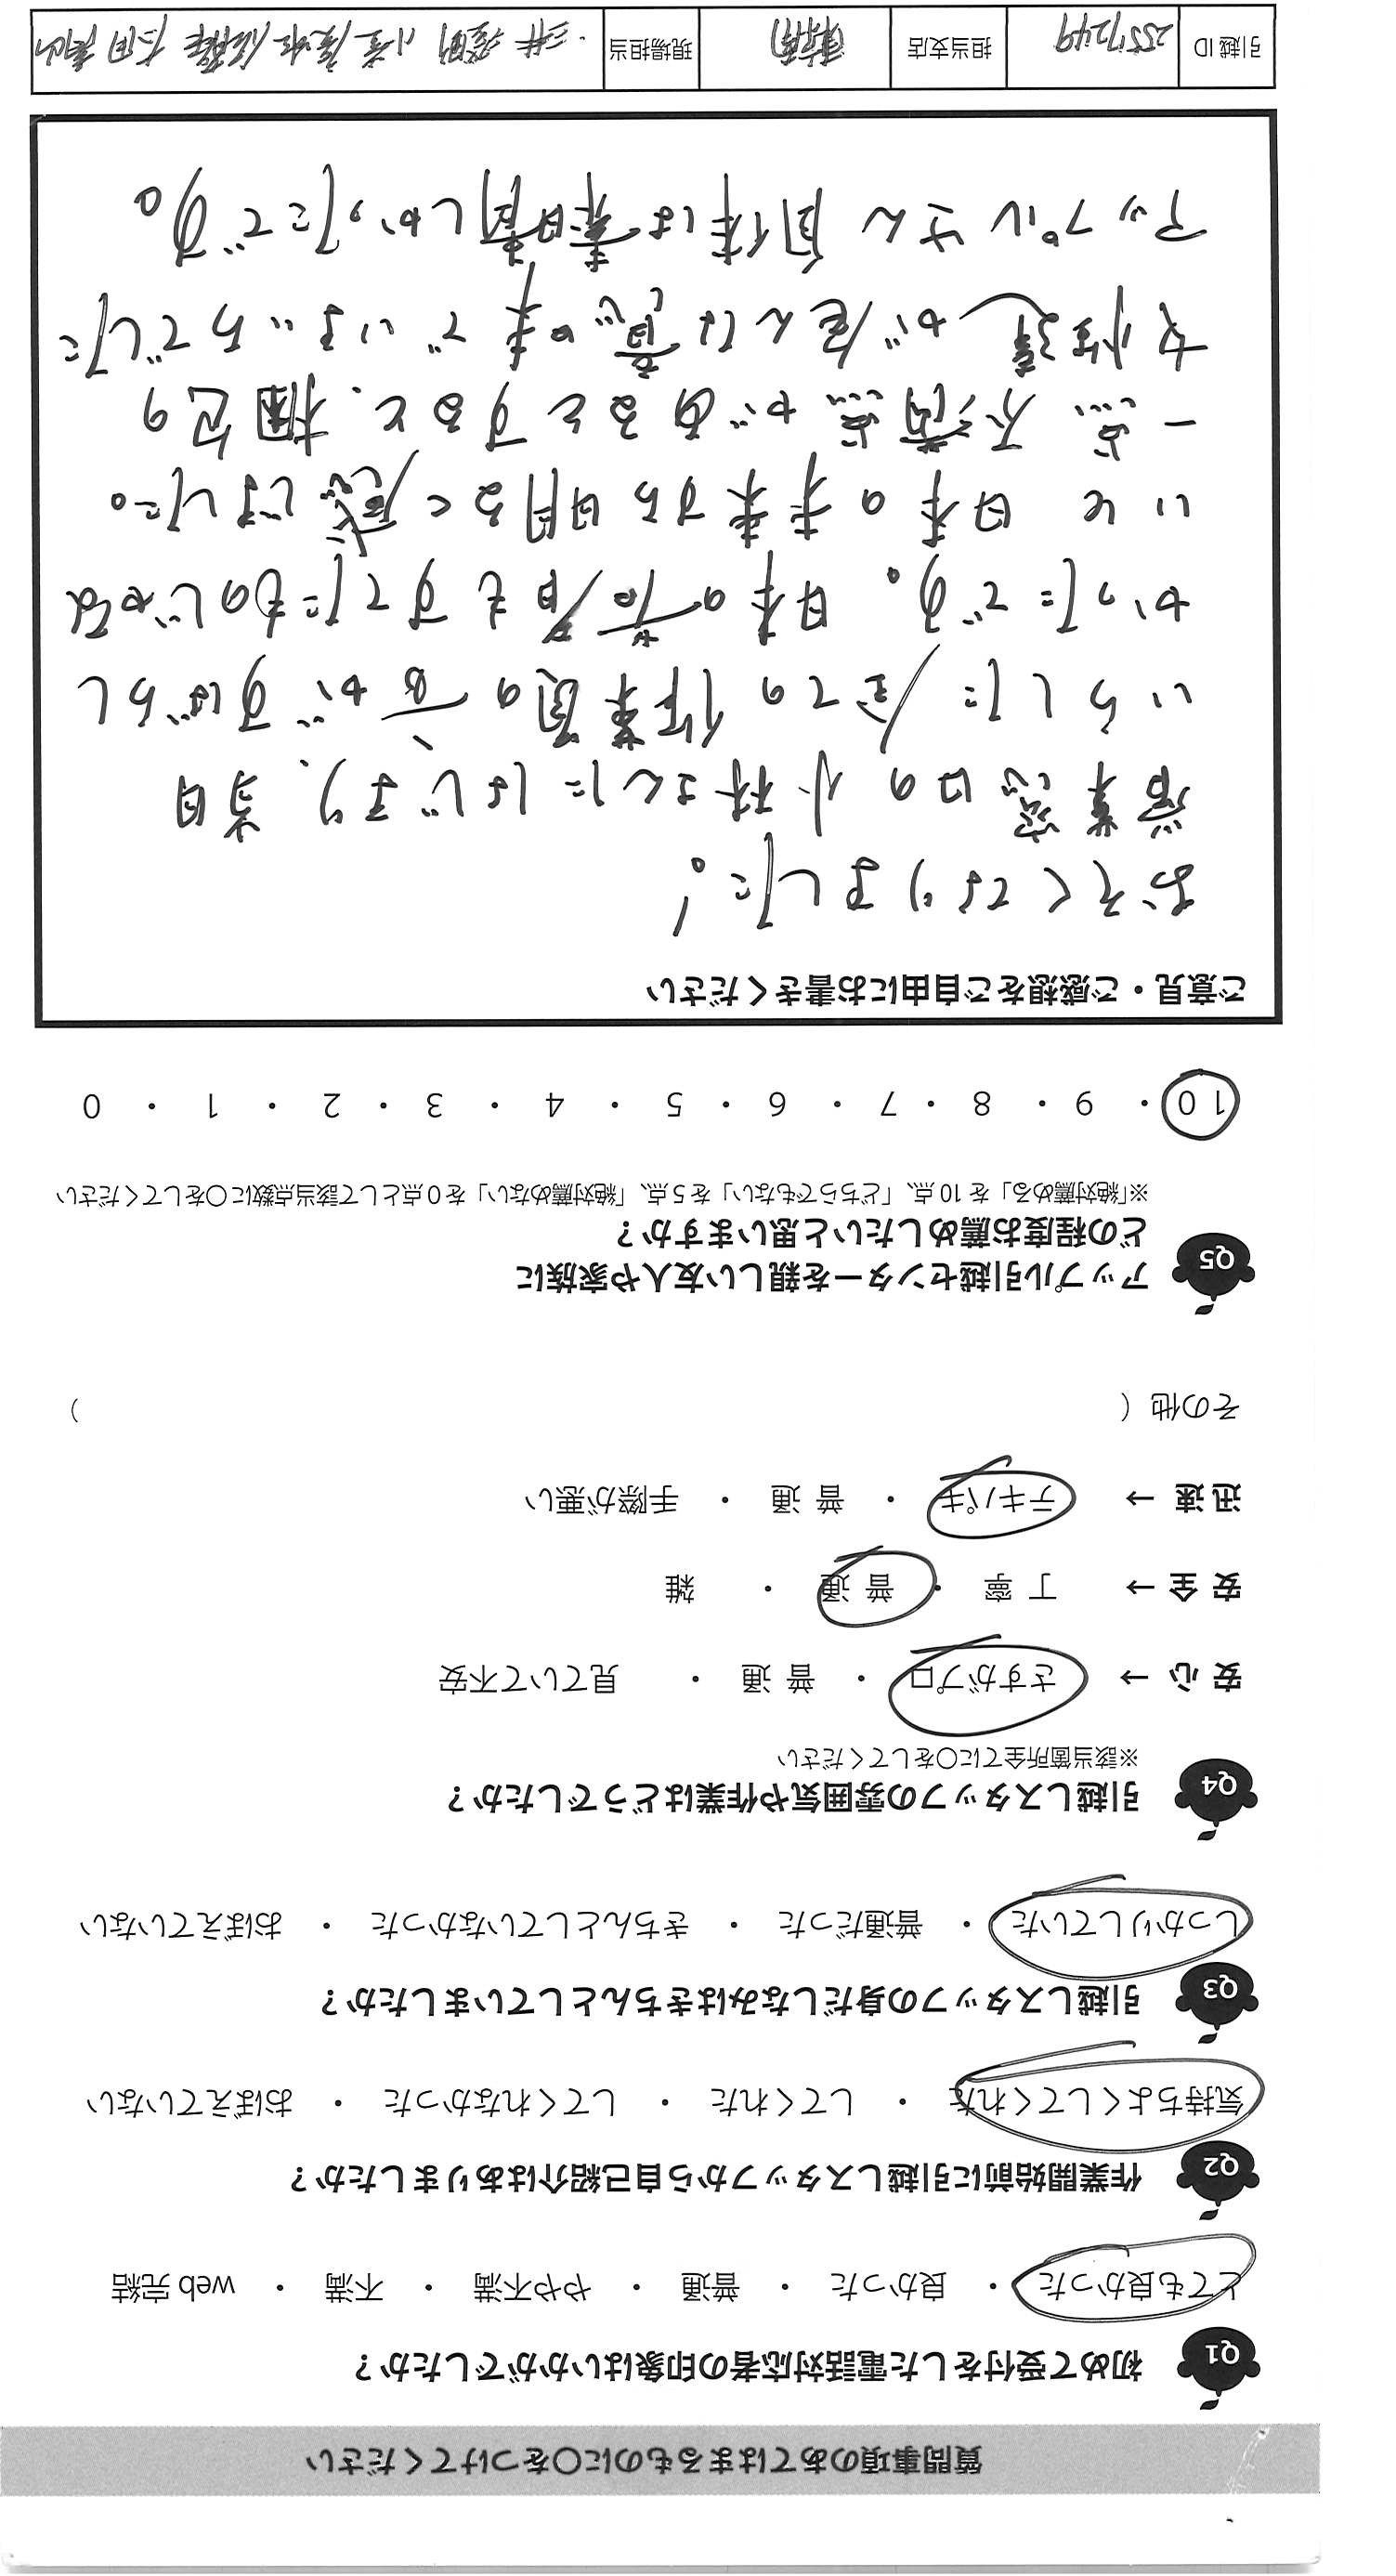 質問事項のあてはまるものに○をつけてください
Q1 初めて受付をした電話対応者の印象はいかがでしたか？
とても良かった ・ 良かった ・ 普通 ・ やや不満 ・ 不満 ・ web 完結
Q2 作業開始前に引越しスタッフから自己紹介はありましたか？
気持ちよくしてくれた ・ してくれた ・ してくれなかった ・ おぼえていない
Q3 引越しスタッフの身だしなみはきちんとしていましたか？
しっかりしていた ・ 普通だった ・ きちんとしていなかった ・ おぼえていない
Q4 引越しスタッフの雰囲気や作業はどうでしたか？
※該当箇所全てに○をしてください
安 心 → さすがプロ ・ 普 通 ・ 見ていて不安
安 全 → 丁 寧 ・ 普 通 ・ 雑
迅 速 → テキパキ ・ 普 通 ・ 手際が悪い
その他 （ ）
Q5 アップル引越センターを親しい友人や家族に
どの程度お薦めしたいと思いますか？
※「絶対薦める」を 10 点、「どちらでもない」を 5 点、「絶対薦めない」を 0 点として該当点数に○をしてください
10 ・ 9 ・ 8 ・ 7 ・ 6 ・ 5 ・ 4 ・ 3 ・ 2 ・ 1 ・ 0
ご意見・ご感想をご自由にお書きください
おそくなりました！
営業窓口の小林さんにはじまり、当日
いらした全ての作業員の方がすばらし
かったです。日本の若者もすてたものじゃな
いと 日本の未来すら明るく感じました。
一点 不満点があるとすると、梱包の
女性達が
アップルさん自体は素晴しかったです。
引越 ID 2557249 担当支店 現場担当